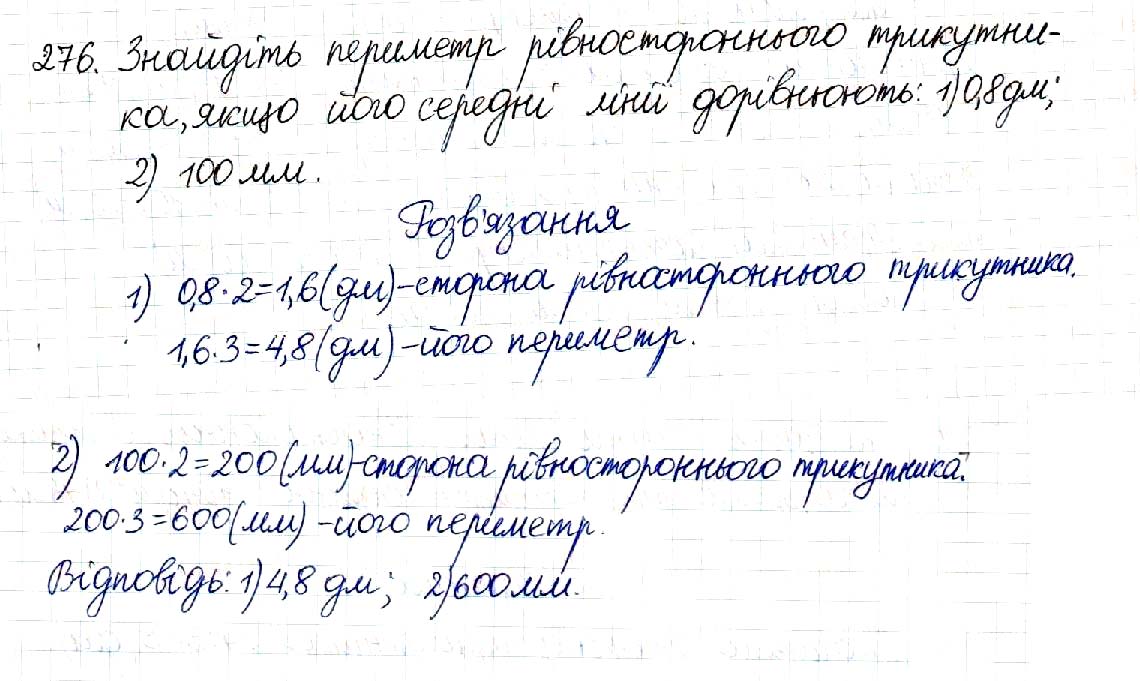 276. Знайдіть периметр рівностороннього трикутни-
ка, якщо його середні лінії дорівнюють: 1) 0,8 дм;
2) 100 мм.
Розв'язання
1) 0,8·2=1,6(дм)-сторона рівностороннього трикутника.
1,6·3=4,8(дм)-його периметр.
2) 100·2=200(мм)-сторона рівностороннього трикутника.
200·3=600(мм)-його периметр.
Відповідь: 1) 4,8 дм; 2) 600 мм.